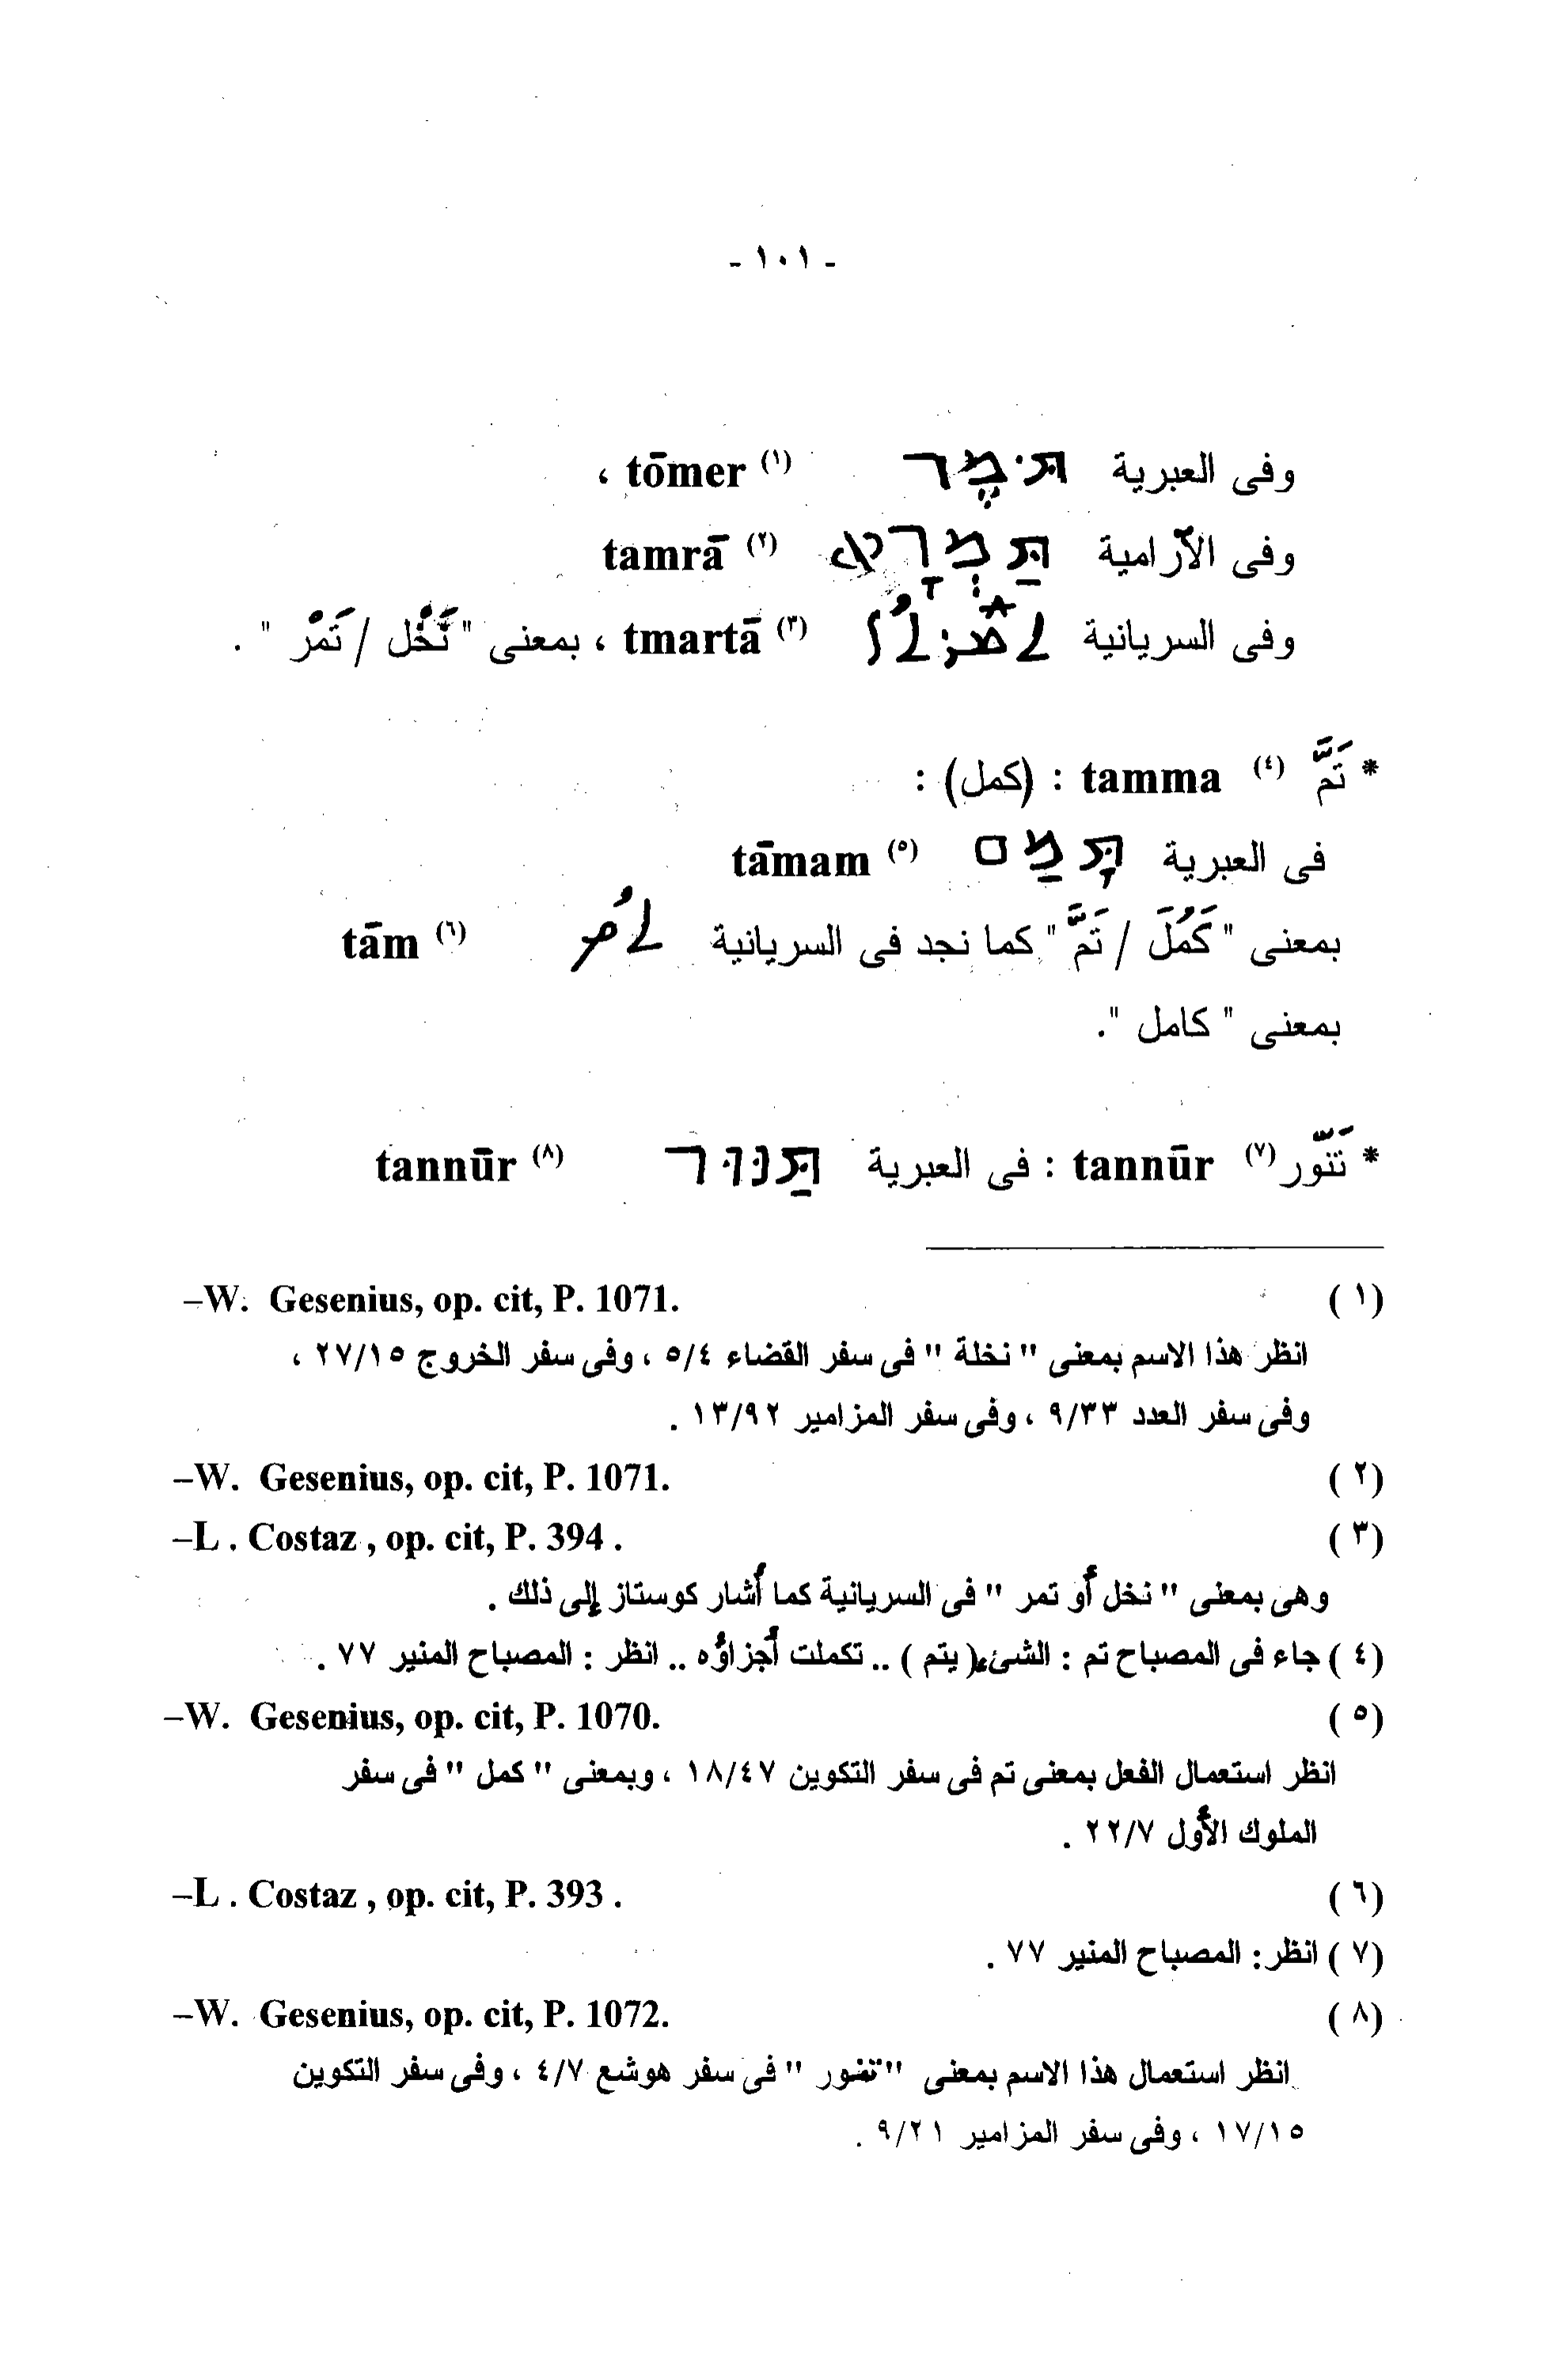 - ١٠١ -
وفى العبرية תֹּמֶר tōmer (١) ،
وفى الآرامية תַּמְרָא tamrā (٢)
وفى السريانية ܬܡܪܬܐ tmartā (٣) ، بمعنى " نَخْل / تَمْر " .
* تَمَّ (٤) tamma : (كمل) :
فى العبرية תָּמַם tāmam (٥)
بمعنى " كَمُلَ / تَمَّ " كما نجد فى السريانية ܬܡ tām (٦)
بمعنى " كامل ".
* تَنّور (٧) tannūr : فى العبرية תַּנּוּר tannūr (٨)
(١) –W. Gesenius, op. cit, P. 1071.
انظر هذا الاسم بمعنى " نخلة " فى سفر القضاء ٥/٤ ، وفى سفر الخروج ٢٧/١٥ ،
وفى سفر العدد ٩/٣٣ ، وفى سفر المزامير ١٣/٩٢ .
(٢) –W. Gesenius, op. cit, P. 1071.
(٣) –L . Costaz , op. cit, P. 394 .
وهى بمعنى " نخل أو تمر " فى السريانية كما أشار كوستاز إلى ذلك .
(٤) جاء فى المصباح تم : الشئ ( يتم ) .. تكملت أجزاؤه .. انظر : المصباح المنير ٧٧ .
(٥) –W. Gesenius, op. cit, P. 1070.
انظر استعمال الفعل بمعنى تم فى سفر التكوين ١٨/٤٧ ، وبمعنى " كمل " فى سفر
الملوك الأول ٢٢/٧ .
(٦) –L . Costaz , op. cit, P. 393 .
(٧) انظر: المصباح المنير ٧٧ .
(٨) –W. Gesenius, op. cit, P. 1072.
انظر استعمال هذا الاسم بمعنى "تنور " فى سفر هوشع ٤/٧ ، وفى سفر التكوين
١٧/١٥ ، وفى سفر المزامير ٩/٢١ .